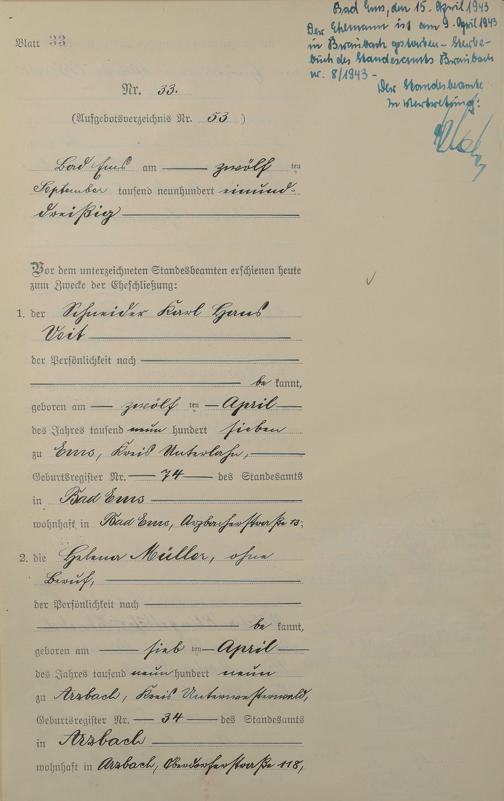 Bad Ems, den 15. April 1943
Der Ehemann ist am 9. April 1943
in Braubach gestorben - Sterbe-
buch des Standesamts Braubach
nr. 8/1943 -
Der Standesbeamte
In Vertretung:
Blatt 33
Nr. 33.
(Aufgebotsverzeichnis Nr. 53 )
Bad Ems am zwölf ten
September tausend neunhundert einund-
dreißig
Vor dem unterzeichneten Standesbeamten erschienen heute
zum Zwecke der Eheschließung:
1. der Schneider Karl Hans
Voit
der Persönlichkeit nach
be kannt,
geboren am zwölf ten April
des Jahres tausend neun hundert sieben
zu Ems, Kreis Unterlahn,
Geburtsregister Nr. 74 des Standesamts
in Bad Ems
wohnhaft in Bad Ems, Arzbacherstraße 13.
2. die Helena Müller, ohne
Beruf,
der Persönlichkeit nach
be kannt,
geboren am sieb ten April
des Jahres tausend neun hundert neun
zu Arzbach, Kreis Unterwesterwald,
Geburtsregister Nr. 34 des Standesamts
in Arzbach
wohnhaft in Arzbach, Oberdorferstraße 118,